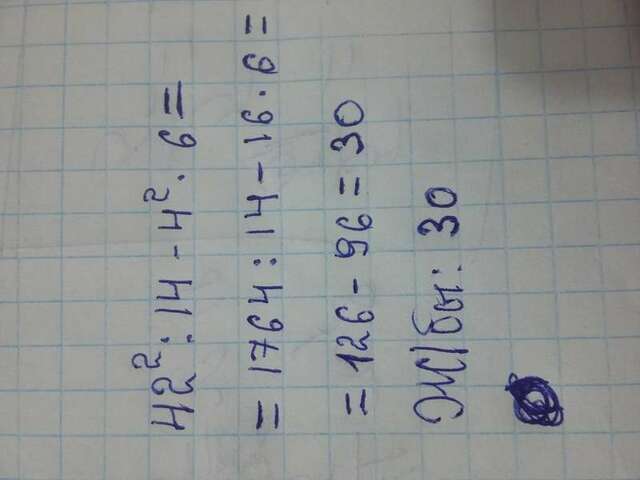 42²:14-4²·6=
=1764:14-16·6=
=126-96=30
Ж/бы: 30